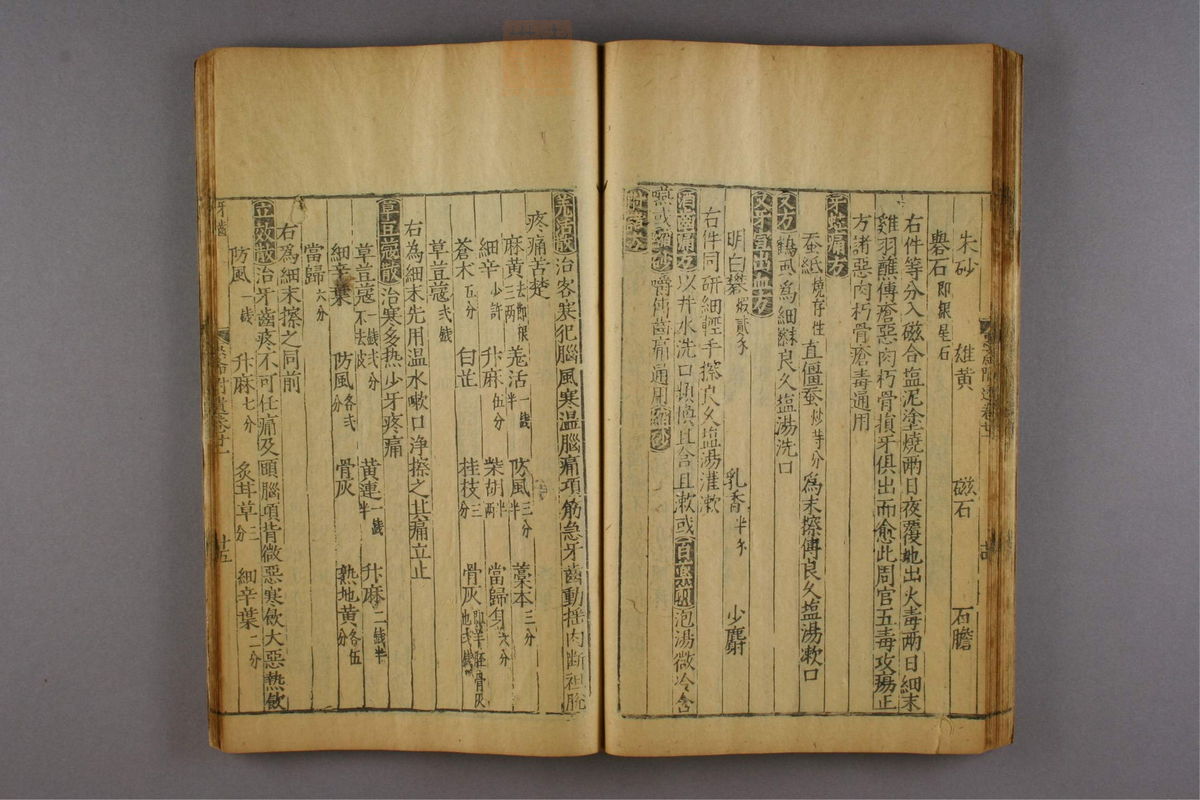 朱砂 雄黄 磁石 石膽
礜石即銀星石
右件等分入磁合塩泥塗燒兩日夜覆地出火毒兩日細末
雞羽蘸傅瘡惡肉朽骨損牙俱出而愈此周官五毒攻瘍正
方諸惡肉朽骨瘡毒通用
牙蛀痛方
蚕紙燒存性 直僵蚕炒等分 為末擦傅良久塩湯漱口
又方 鶴虱為細末擦良久塩湯洗口
又牙宣出血方
明白礬煅貳錢 乳香半錢 少麝
右件同研細輕手擦良久塩湯灌漱
酒齒痛方 以井水洗口頻換且含且漱或百藥煎泡湯微冷含
嚥或縮砂嚼傅齒痛通用縮砂
羌活散 治客寒犯腦風寒温腦痛項筋急牙齒動揺肉断袒脫
疼痛苦楚
麻黄去節根三兩 羗活一錢半 防風三分半 藁本三分
細辛少許 升麻伍分 柴胡半兩 當歸身六分
蒼木五分 白芷 桂枝三分 骨灰
草豆蔻一錢
右為細末先用温水嗽口浄擦之其痛立止
草豆蔻散 治寒多熱少牙疼痛
草豆蔻一錢弍分不去皮 黄連一錢半 升麻二錢半
細辛葉 防風各弍分 骨灰 熟地黄各伍分
當歸六分
右為細末擦之同前
立效散 治牙齒疼不可任痛及頭腦項背微惡寒飲大惡熱飲
防風一錢 升麻七分 炙甘草三分 細辛葉二分